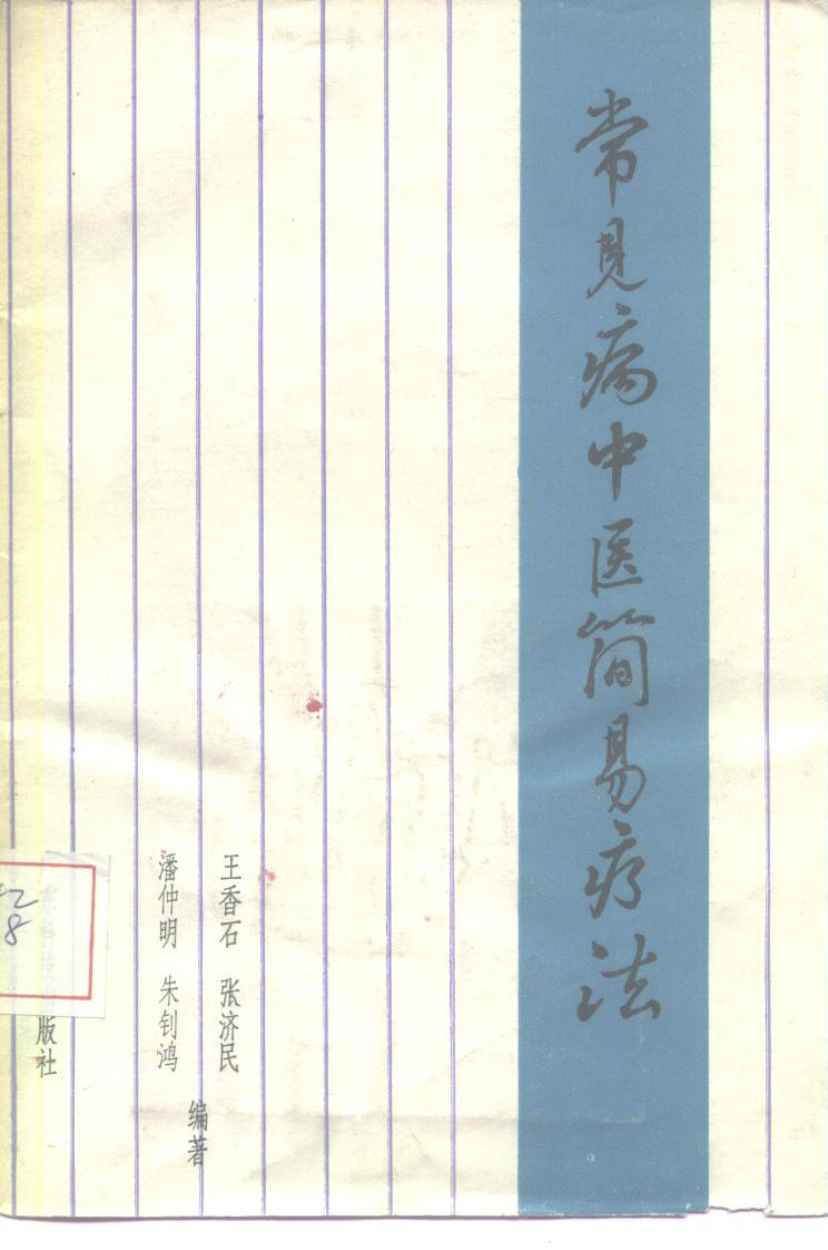 常见病中医简易疗法
王香石 张济民
潘仲明 朱钊鸿
编著
版社
28